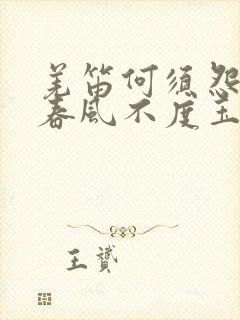 羌笛何须怨
春风不度玉
王赟